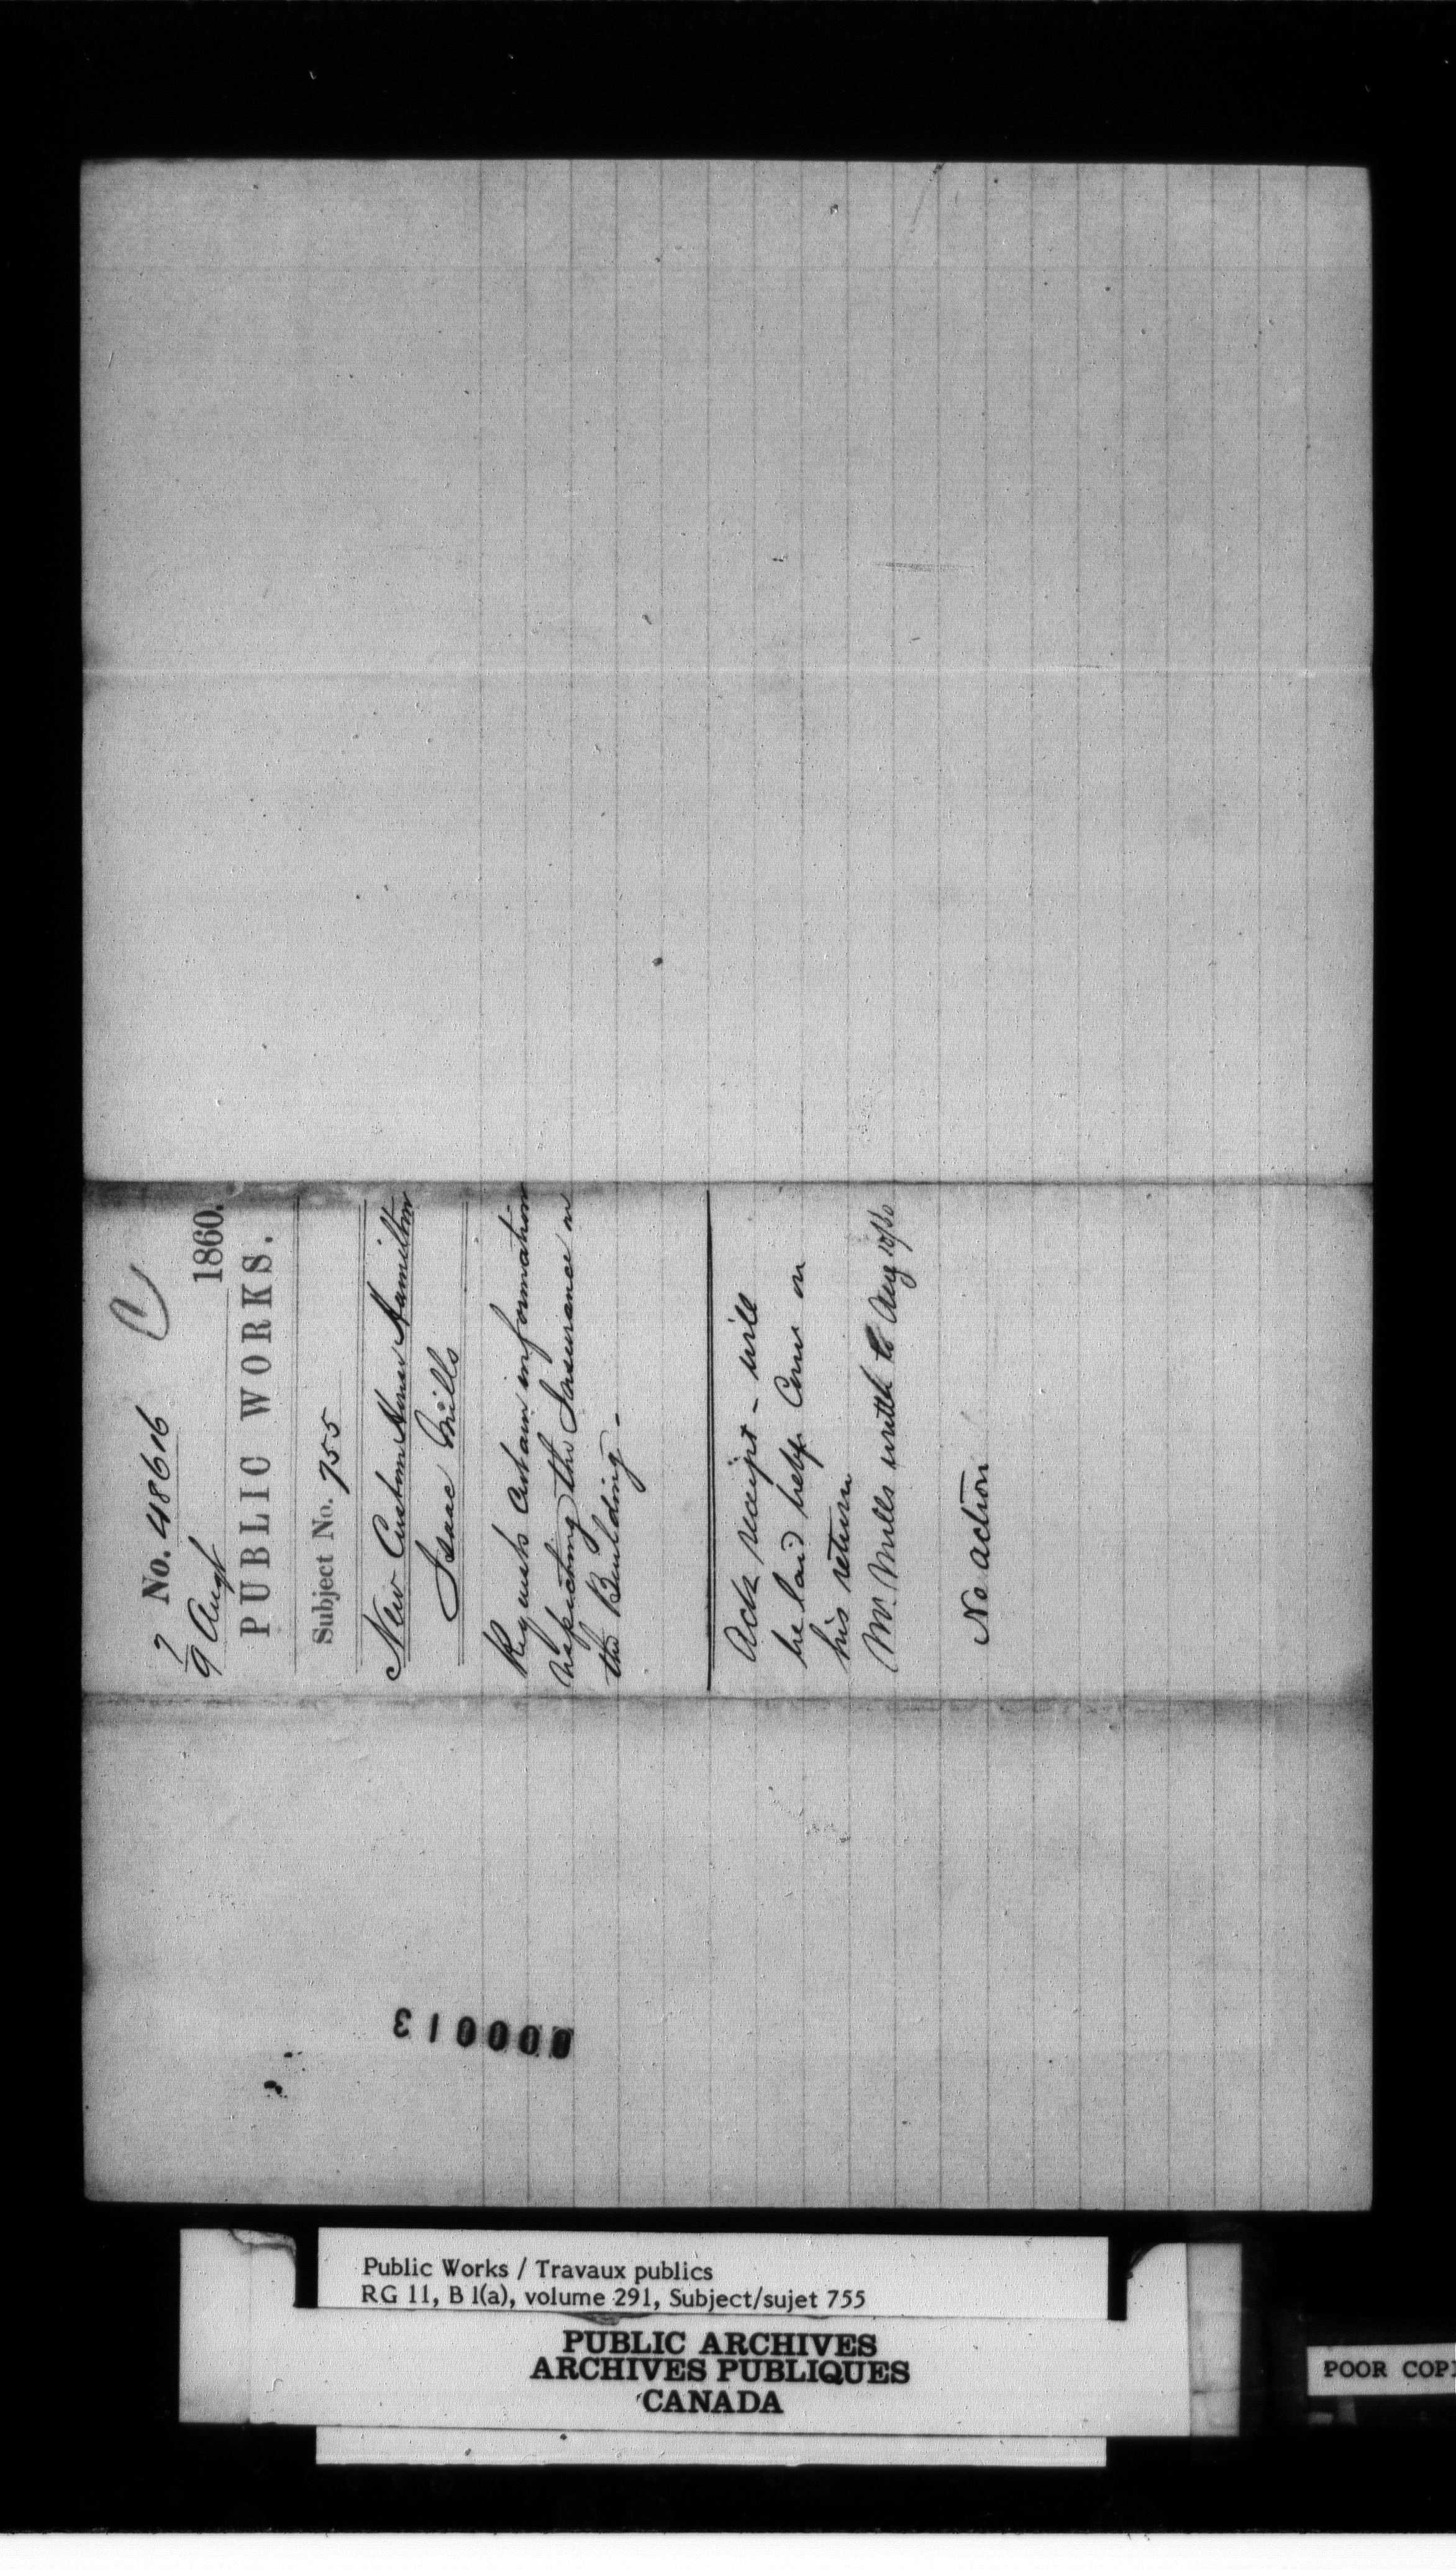 No. 48616
7
9 Augt 1860.
PUBLIC WORKS.
Subject No. 755
New Custom House Hamilton
Isaac Mills
Requests certain information
respecting the Insurance on
the Building -
Ack receipt - will
be laid before Com on
his return
Mr. Mills written to Aug 10/60
No action
000013
Public Works / Travaux publics
RG 11, B 1(a), volume 291, Subject/sujet 755
PUBLIC ARCHIVES
ARCHIVES PUBLIQUES
CANADA
POOR COPI